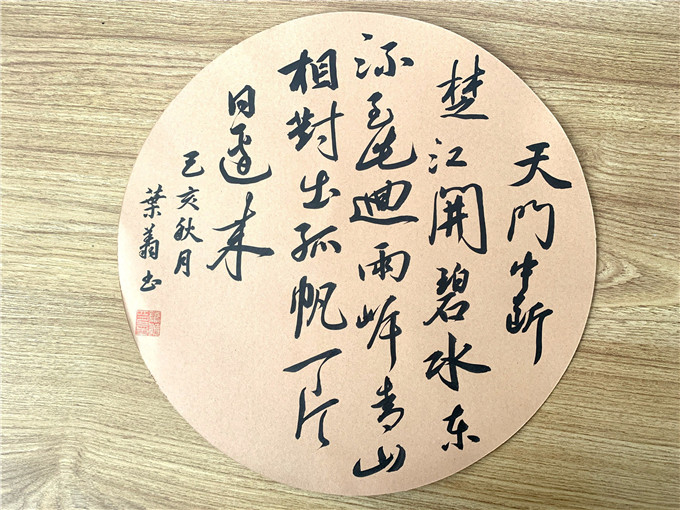 天門中断
楚江開碧水东
流至此迴兩岸青山
相對出孤帆一片
日邊来
己亥秋月
葉 书